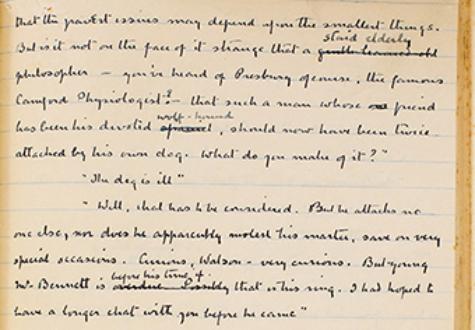 that the gravest issues may depend upon the smallest things.
staid elderly
But is it not on the face of it strange that a gentle learned old
philosopher – you've heard of Presbury of course, the famous
Camford Physiologist? – that such a man whose friend
wolf-hound
has been his devoted spaniel, should now have been twice
attacked by his own dog. What do you make of it?"
"The dog is ill"
"Well, that has to be considered. But he attacks no
one else, nor does he apparently molest his master, save on very
special occasions. Curious, Watson – very curious. But young
before his time if
Mr. Bennett is overdue. Possibly that is his ring. I had hoped to
have a longer chat with you before he came"